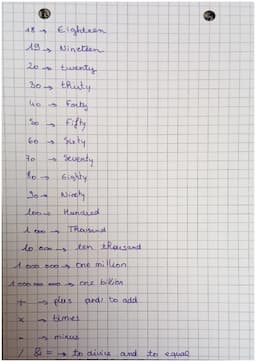 18 → Eighteen
19 → Nineteen
20 → twenty
30 → thirty
40 → Forty
50 → Fifty
60 → Sixty
70 → Seventy
80 → Eighty
90 → Ninety
100 → Hundred
1 000 → Thousand
10 000 → ten thousand
1 000 000 → one million
1 000 000 000 → one billion
+ → plus and to add
x → times
- → minus
/ & = → to divise and to equal